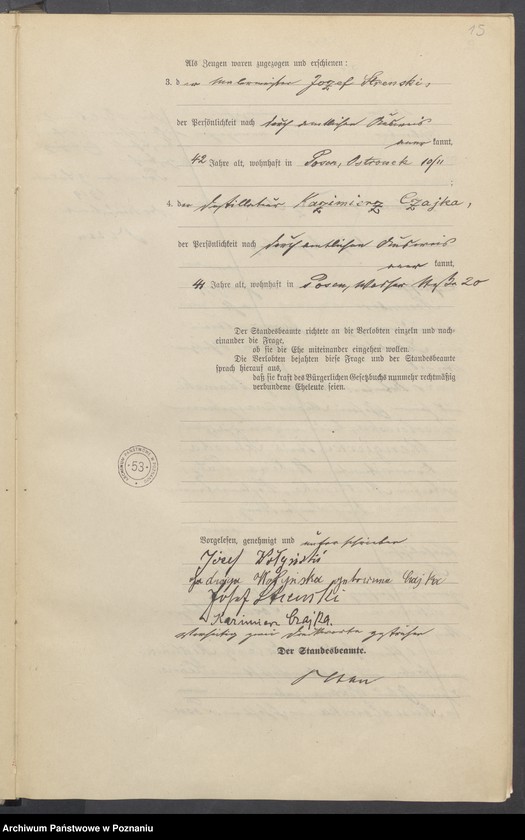 15
Als Zeugen waren zugezogen und erschienen:
3. der Malermeister Jozef Strenski,
der Persönlichkeit nach durch amtlichen Ausweis
kannt,
42 Jahre alt, wohnhaft in Posen, Ostrowek 10/11
;
4. der Destillateur Kazimierz Czajka,
der Persönlichkeit nach durch amtlichen Ausweis
kannt,
41 Jahre alt, wohnhaft in Posen, Wasser Straße 20
Der Standesbeamte richtete an die Verlobten einzeln und nach-
einander die Frage,
ob sie die Ehe miteinander eingehen wollen.
Die Verlobten bejahten diese Frage und der Standesbeamte
sprach hierauf aus,
daß sie kraft des Bürgerlichen Gesetzbuchs nunmehr rechtmäßig
verbundene Eheleute seien.
ARCHIWUM PAŃSTWOWE W POZNANIU
53
Vorgelesen, genehmigt und unterschrieben
Józef Wołyński
Jadwiga Wołyńska geborene Czajka
Józef Strenski
Kazimierz Czajka.
gestrichen
Der Standesbeamte.
Archiwum Państwowe w Poznaniu
www.szukajwarchiwach.gov.pl